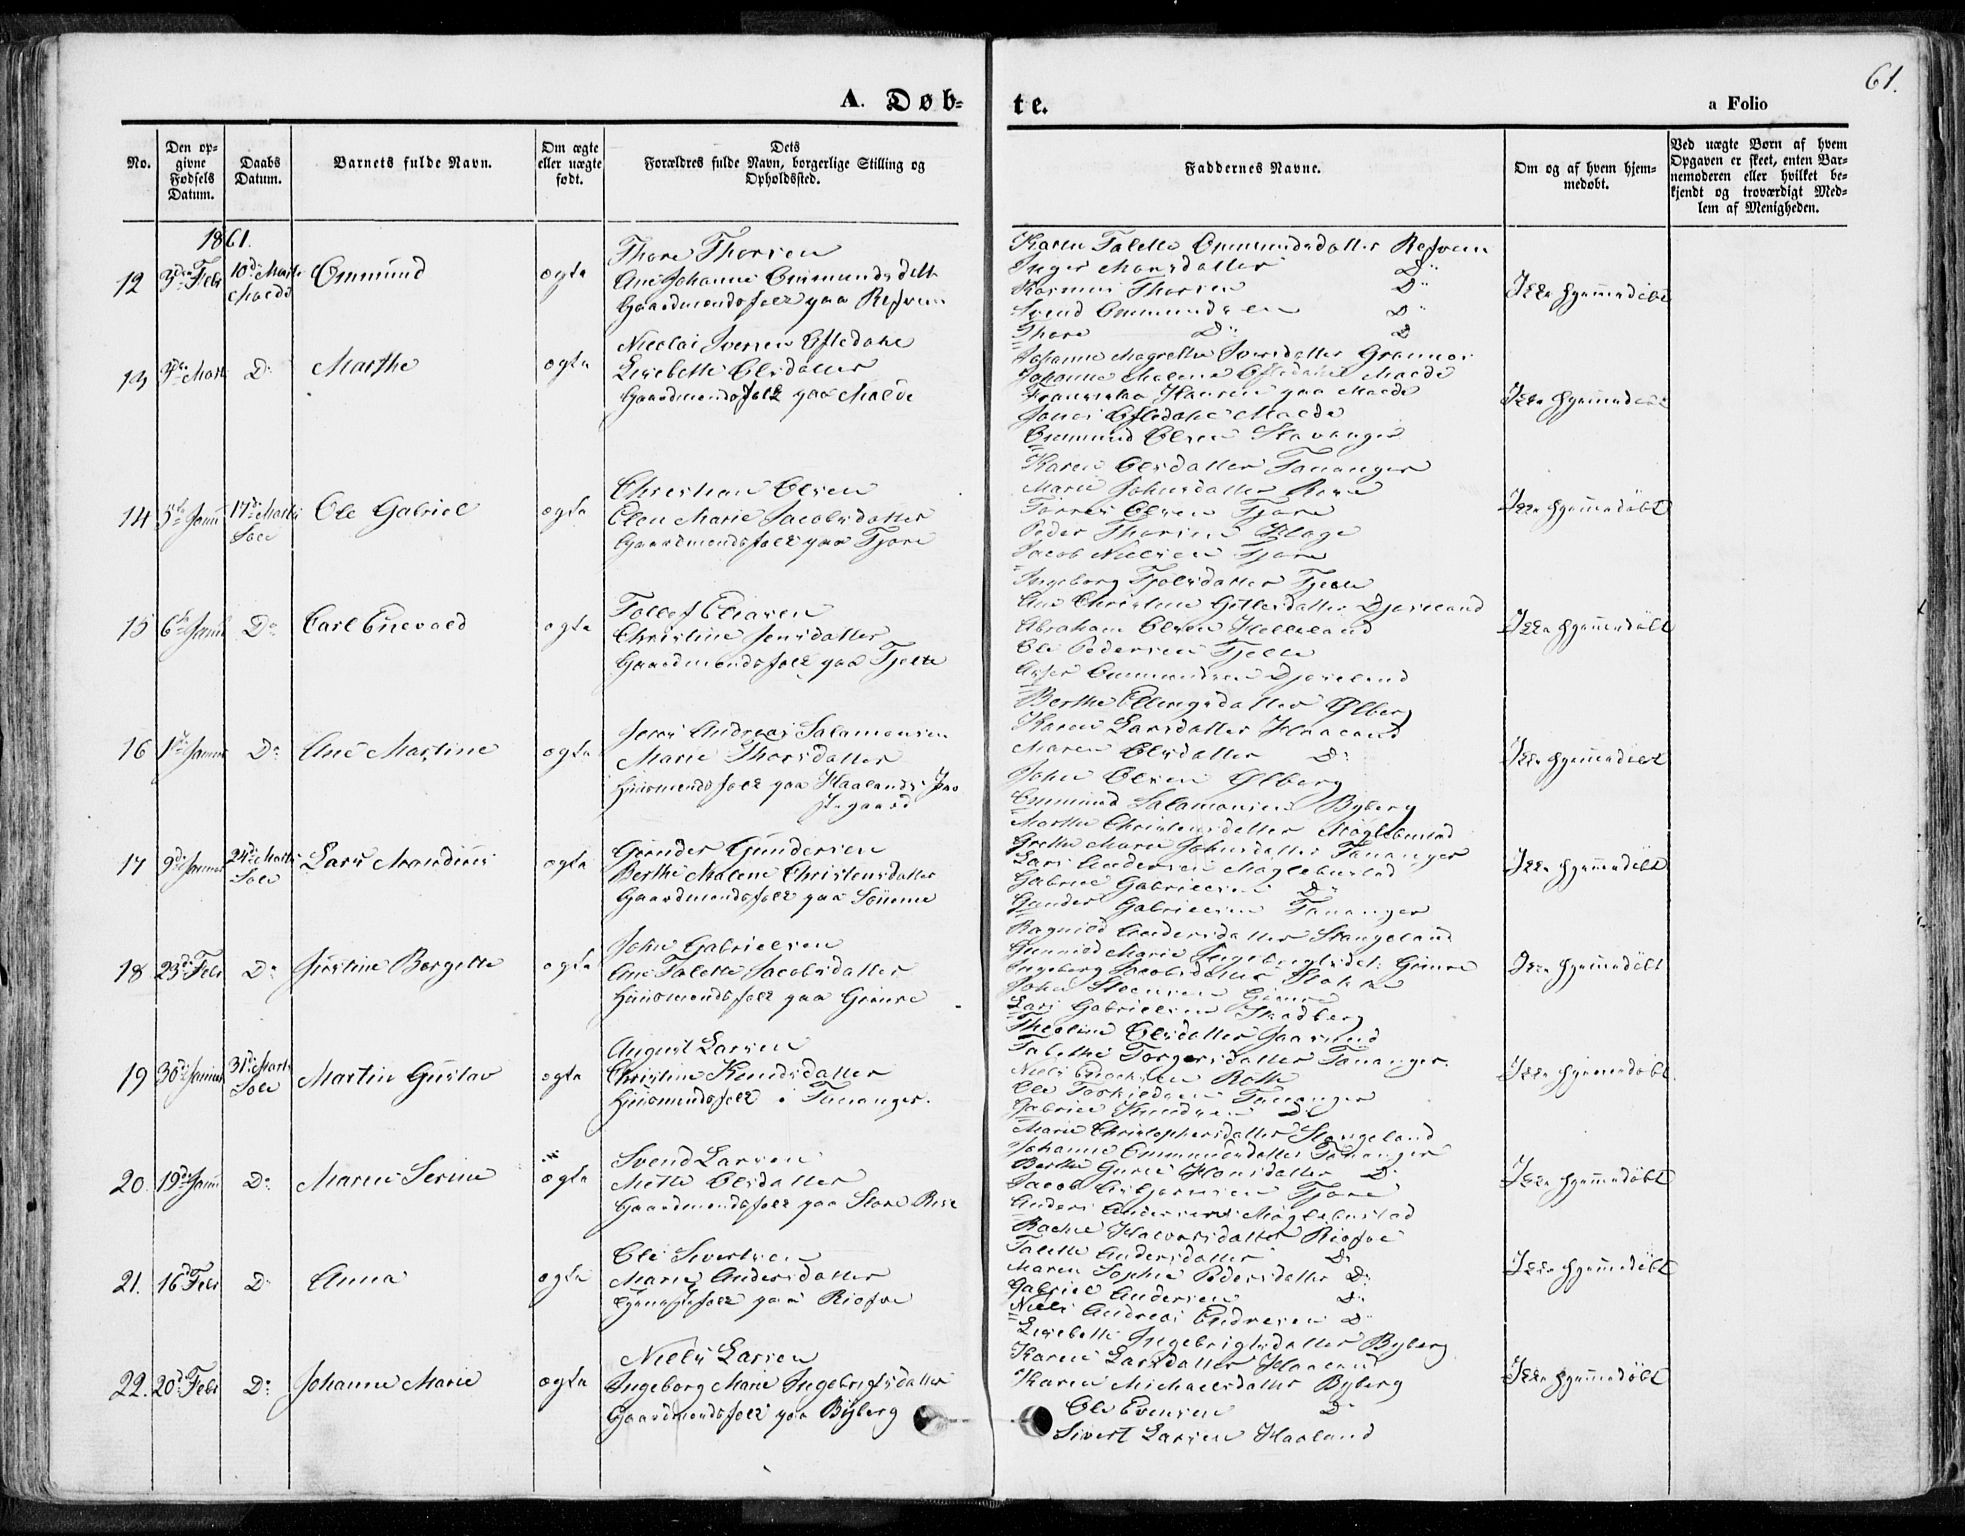 61.
A. Døb-
te.
a Folio
No.
Den op-
givne
Fødsels
Datum.
Daabs
Datum.
Barnets fulde Navn.
Om ægte
eller uægte
født.
Dets
Forældres fulde Navn, borgerlige Stilling og
Opholdssted.
Faddernes Navne.
Om og af hvem hjem-
medøbt.
Ved uægte Børn af hvem
Opgaven er skeet, enten Bar-
nemoderen eller hvilket be-
kjendt og troværdigt Med-
lem af Menigheden.
1861.
12 3die Febr 10de Marts Malde Ommund ægte
Thore Thorsen
Ane Johanne Ommundsdatt
Gaardmandsfolk paa Refsem
Karen Talette Ommundsdatter Refsem
Inger Monsdatter Do
Rasmus Thorsen Do
Svend Ommundsen Do
Thore Do Do
Ikke hjemmedøbt
13 Marts Do Marthe ægte
Nicolai Iversen Eftedahl
Lisebette Olsdatter
Gaardmandsfolk paa Malde
Johanne Magrethe Iversdatter
Johanne Malene Eftedahl Malde
Hansen paa Malde
Jonas Eftedahl Malde
Ommund Olsen Stavanger
Ikke hjemmedøbt
14 5te Janu 17de Marts Sole Ole Gabriel ægte
Christian Olsen
Elen Marie Jacobsdatter
Gaardmandsfolk paa Tjore
Karen Olsdatter Tananger
Marie Johnsdatter
Torres Olsen Tjore
Peder Thorsen
Jacob Nielsen Tjore
Ikke hjemmedøbt
15 6te Janu Do Carl Enevald ægte
Tollef Eliasen
Christine Jensdatter
Gaardmandsfolk paa Tjelte
Ingeborg Tjolsdatter Tjelte
Ane Christine Gitlesdatter Djoseland
Abraham Olsen Helleland
Ole Pedersen Tjelte
Ommundsen Djoseland
Ikke hjemmedøbt
16 1ste Janua Do Ane Martine ægte
Jens Andreas Salamonsen
Marie Thorsdatter
Huusmandsfolk paa Haalands Præ
stegaard
Berthe Ellingsdatter Ølberg
Karen Larsdatter Haaland
Maren Olsdatter Do
John Olsen Ølberg
Ommund Salamonsen Byberg
Ikke hjemmedøbt
17 9de Januar 24de Marts Sole Lars Mandius ægte
Gunder Gundersen
Berthe Malene Christensdatter
Gaardmandsfolk paa Sømme
Marthe Christensdatter Møglebustad
Grethe Marie Johnsdatter Tananger
Lars Andersen Møglebustad
Gabriel Gabrielsen Do
Gunder Gabrielsen Tananger
Ikke hjemmedøbt
18 23de Febr Do Justine Bergette ægte
John Gabrielsen
Ane Talette Jacobsdatter
Huusmandsfolk paa Grimre
Ragnild Andersdatter Stangeland
Gunnild Marie Ingebrigtsdt. Grimre
Ingeborg Jacobsdatter
John Steensen Grimre
Lars Gabrielsen Skadberg
Ikke hjemmedøbt
19 30te Januar 31te Marts Sole Martin Gustav ægte
August Larsen
Christine Knudsdatter
Huusmandsfolk i Tananger.
Theoline Olsdatter Jaasund
Tabethe Torgersdatter Tananger.
Niels Enochsen Roth
Ole Torkildsen Tananger
Gabriel Knudsen Do
Ikke hjemmedøbt
20. 19de Janu Do Maren Serine ægte
Svend Larsen
Mette Olsdatter
Gaardmandsfolk paa Store Risa
Marie Christophersdatter Stangeland
Johanne Ommundsdatter Tananger
Berthe Gurie Hansdatter Do
Jacob Asbjørnsen Tjore
Anders Andersen Møglebustad
Ikke hjemmedøbt
21. 16de Febr Do Anna ægte
Ole Sivertsen
Marie Andersdatter
Tjenestefolk paa Risøe
Rachel Halvorsdatter Risøe
Talette Andersdatter Do
Maren Sophie Pedersdatter Do
Gabriel Andersen Do
Niels Andreas Endresen Do
Ikke hjemmedøbt
22. 20de Febr Do Johanne Marie ægte
Niels Larsen
Ingeborg Marie Ingebrigtsdatter
Gaardmandsfolk paa Byberg
Lisebette Ingebrigtsdatter Byberg
Karen Larsdatter Haaland
Karen Michaelsdatter Byberg
Ole Evensen Do
Sivert Larsen Haaland
Ikke hjemmedøbt